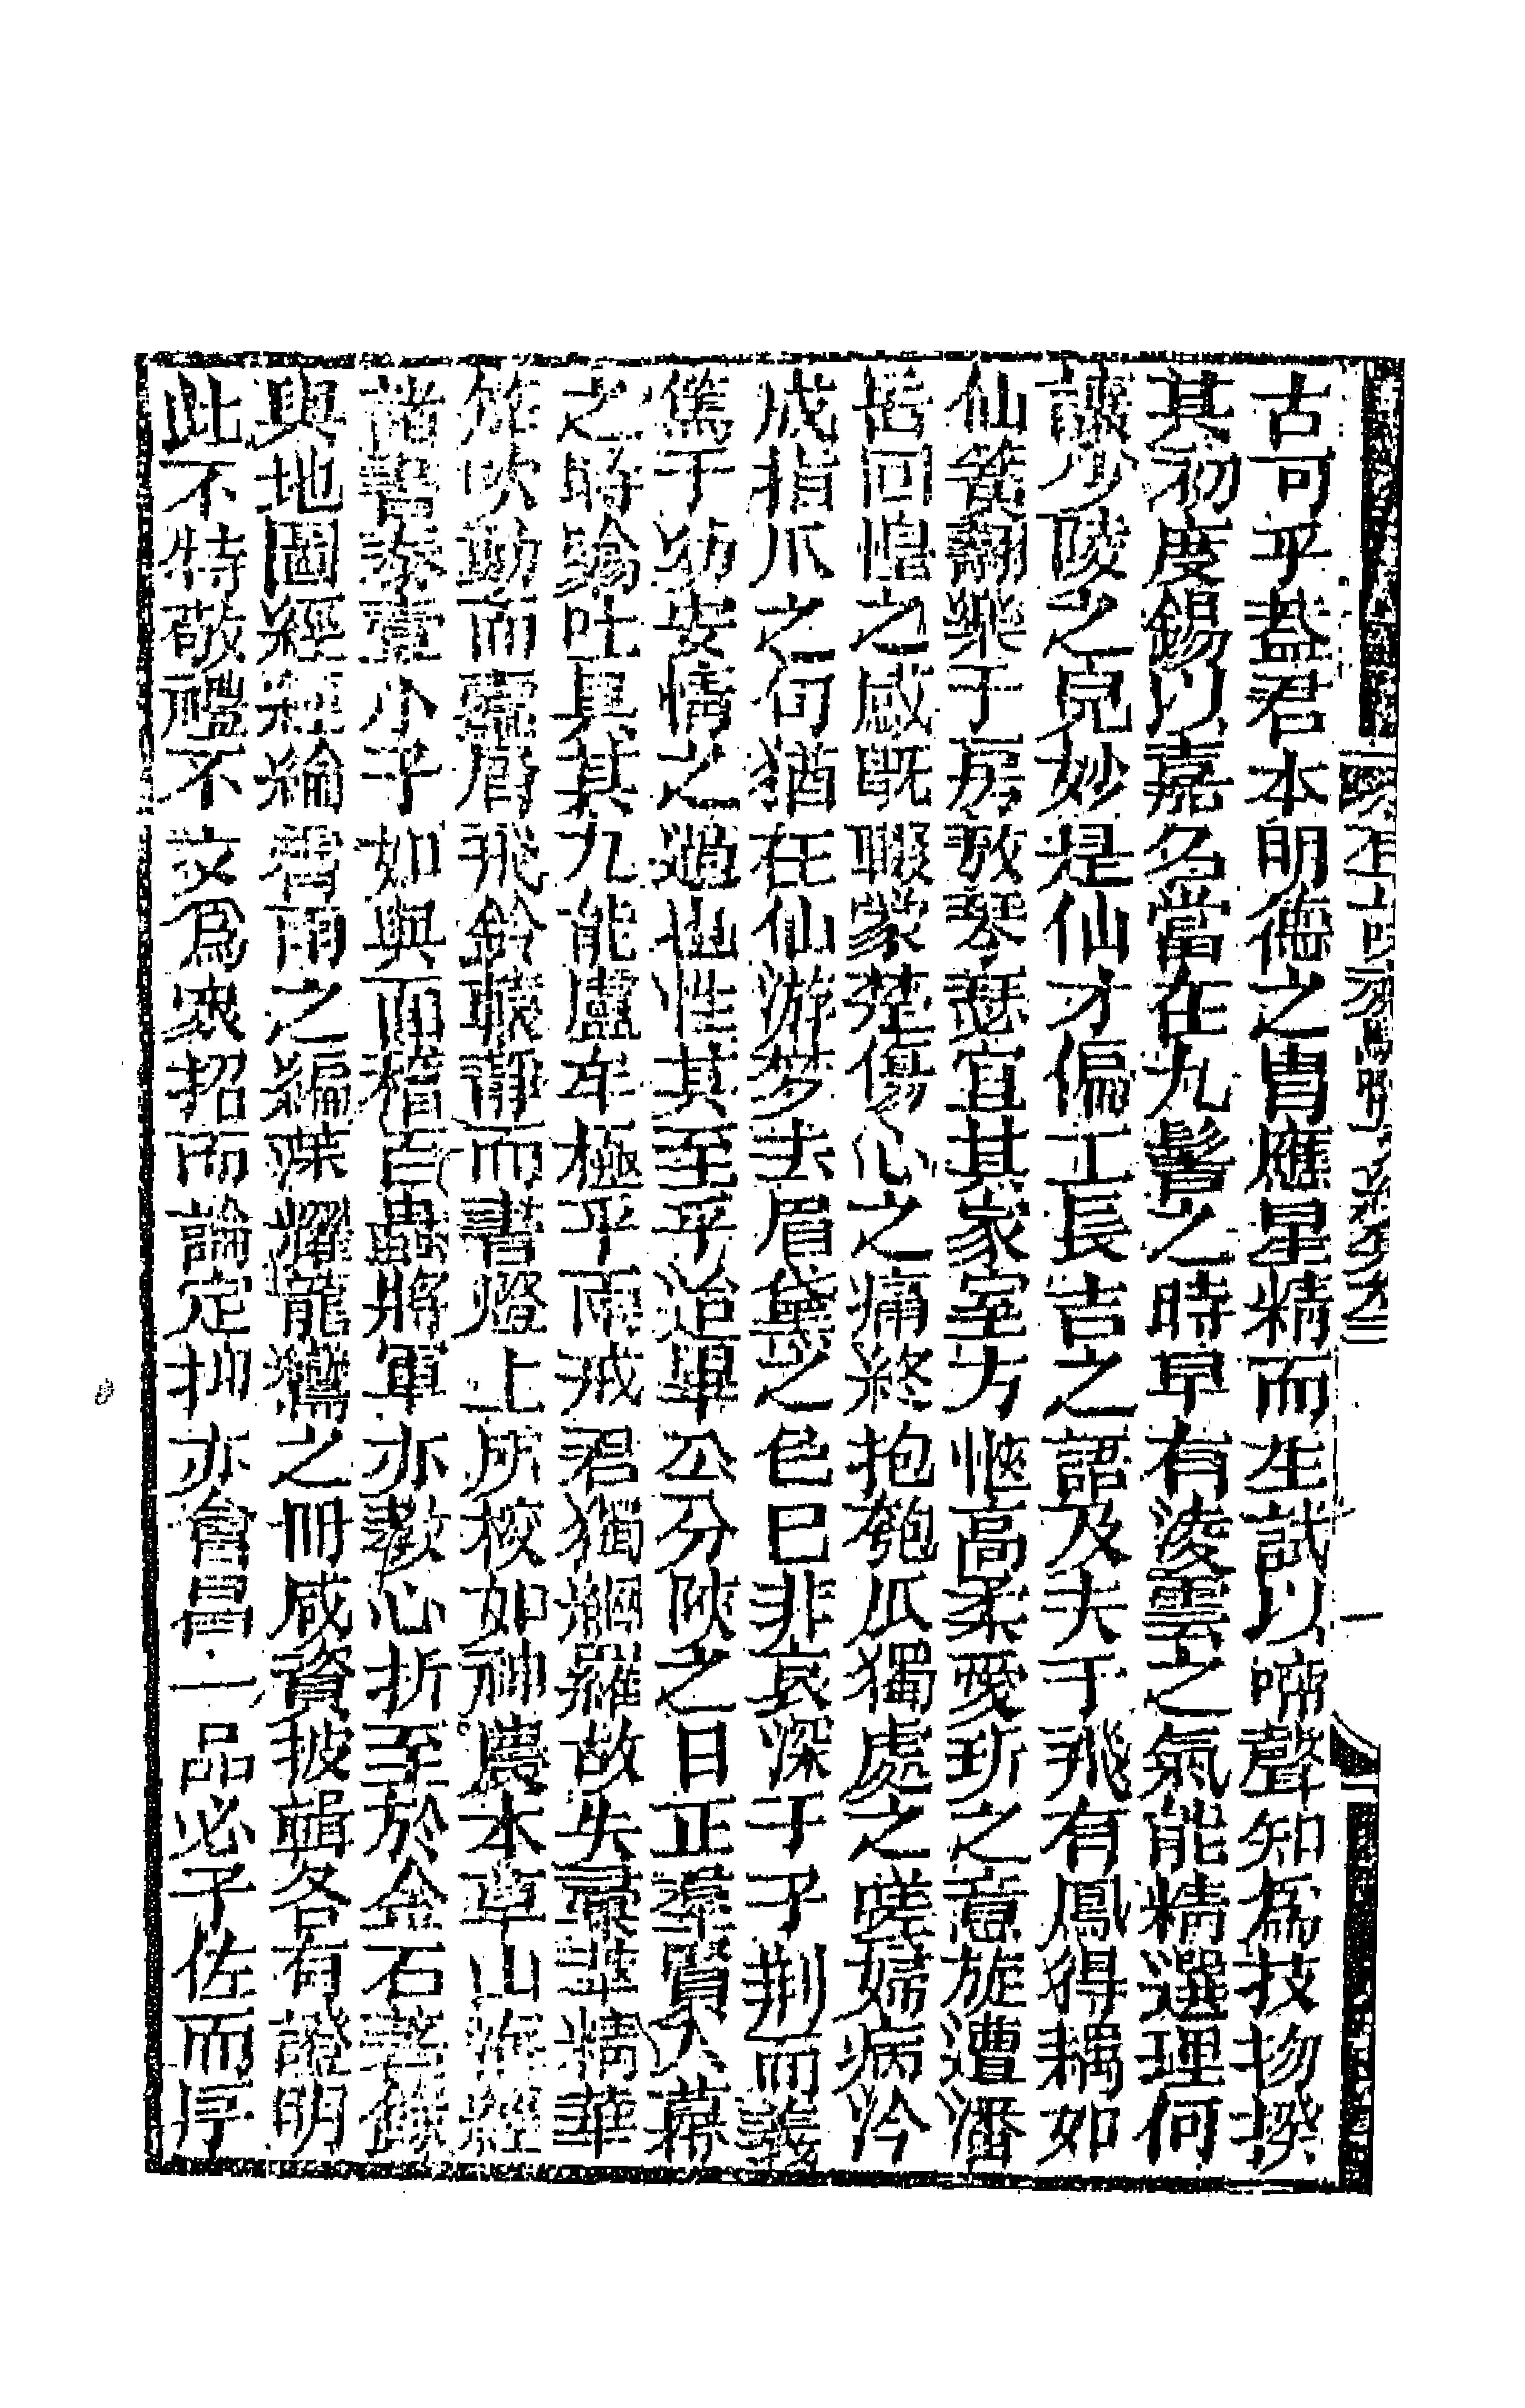 古可乎葢君本明德之胄應星精而生試以啼聲知爲技物揆
其初度錫以嘉名當在九髫之時早有淩雲之氣能精選理何
讓少陵之兒妙是仙才偏工長吉之語及夫于飛有鳳得耦如
仙簧翻樂于房敔琴瑟宜其家室方愜高柔愛玩之意旋遭潘
岳回惶之感旣輟蒙楚傷心之痛終抱匏瓜獨處之嗟婦病沴
成指爪之句猶在仙游梦去眉黛之色巳非哀深于子荆而義
篤于幼安情之遒也性其至乎迨畢公分陝之日正羣賢入幕
之時綸吐具其九能盧牟極乎兩戒君獨網羅放失囊橐精華
筦吹動而靈厝飛鈴聲靜而書燈上所校如神農本草山海經
諸書泰壹小子如與而稽百蟲將軍亦歎心折至於金石著錄
輿地圖經經綸雷雨之編葆燿龍鸞之冊咸資披輯各有證明
此不特敬禮不文爲衆招而論定抑亦會昌一品必予佐而序